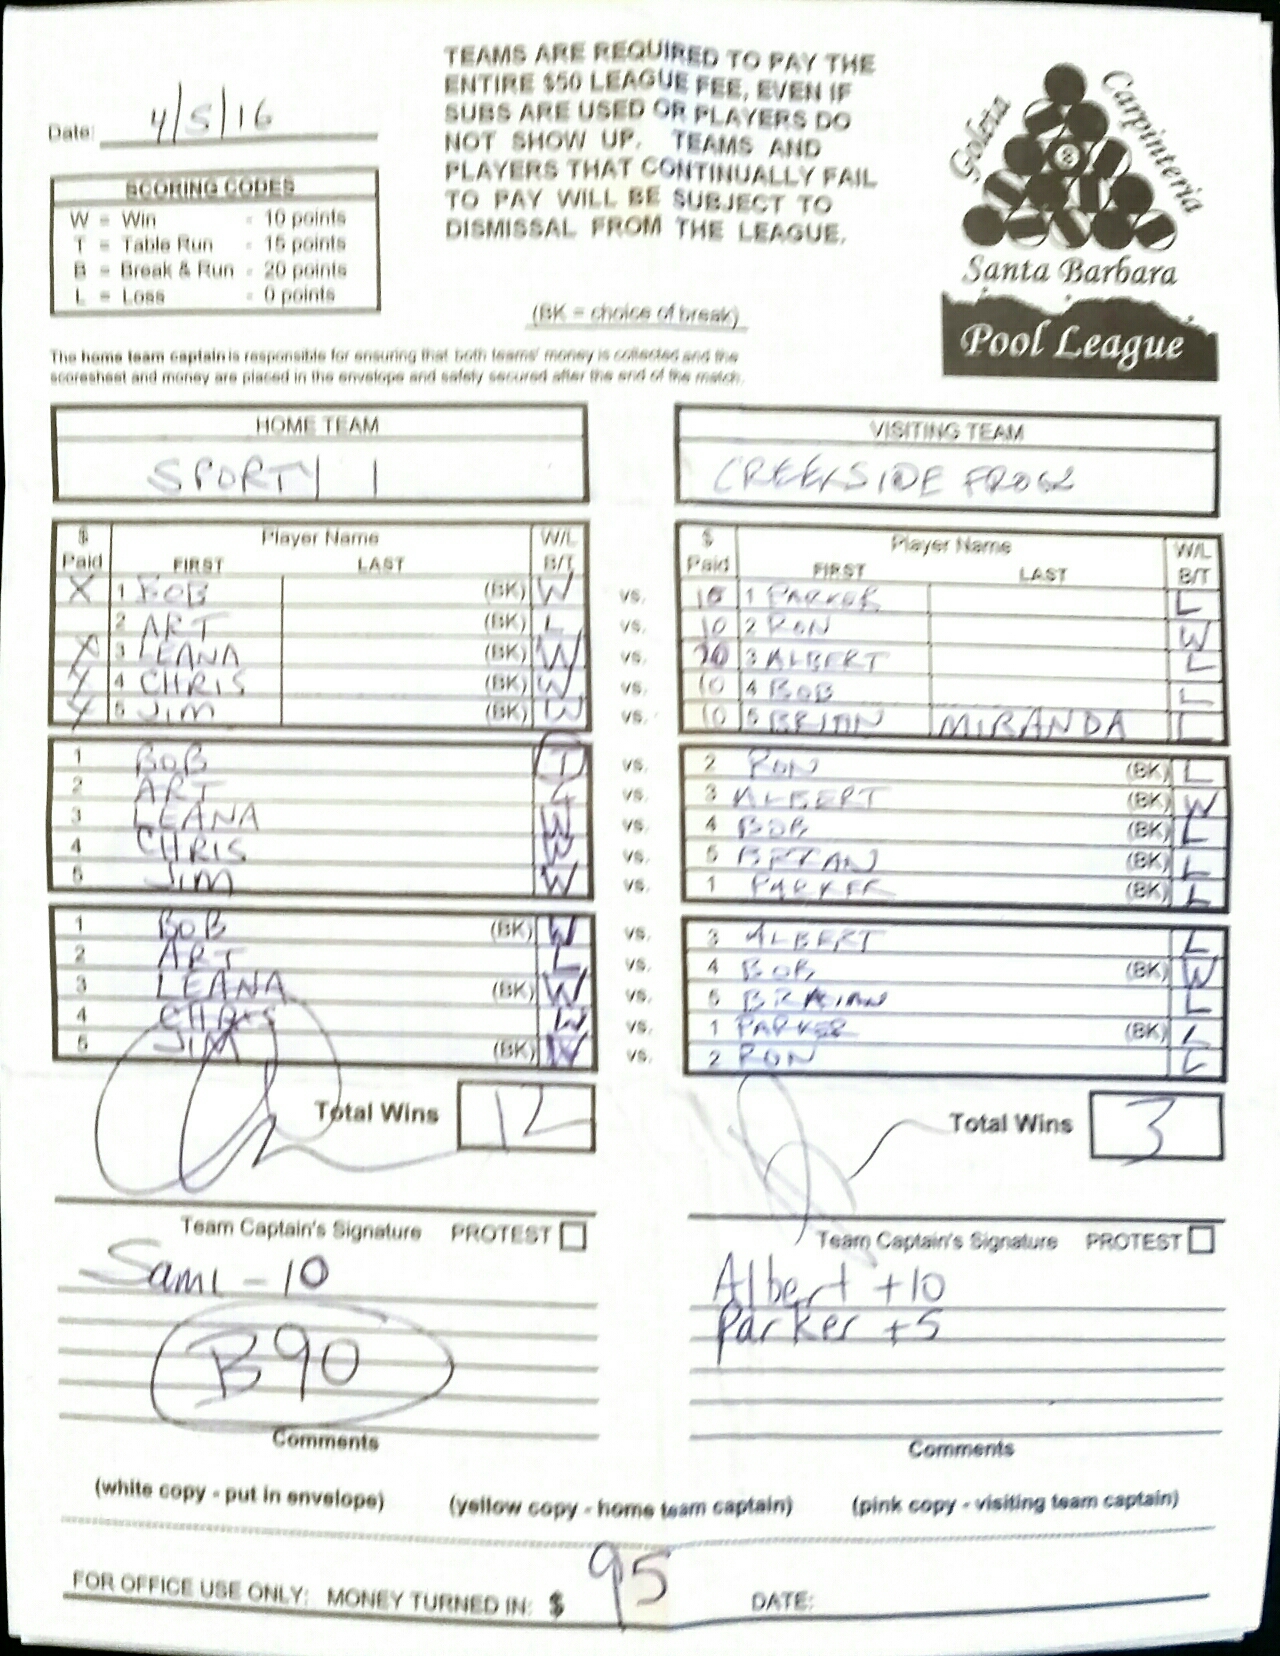 TEAMS ARE REQUIRED TO PAY THE
ENTIRE $50 LEAGUE FEE, EVEN IF
SUBS ARE USED OR PLAYERS DO
NOT SHOW UP. TEAMS AND
PLAYERS THAT CONTINUALLY FAIL
TO PAY WILL BE SUBJECT TO
DISMISSAL FROM THE LEAGUE.
Date: 4/5/16
Goleta
Carpinteria
8
Santa Barbara
Pool League
SCORING CODES
W = Win - 10 points
T = Table Run - 15 points
B = Break & Run - 20 points
L = Loss - 0 points
(BK = choice of break)
The home team captain is responsible for ensuring that both teams' money is collected and the
scoresheet and money are placed in the envelope and safely secured after the end of the match.
HOME TEAM VISITING TEAM
SPORTY 1 CREEKSIDE FROGZ
$ Paid Player Name FIRST LAST W/L B/T $ Paid Player Name FIRST LAST W/L B/T
X 1 BOB (BK) W vs. 15 1 PARKER L
2 ART (BK) L vs. 10 2 RON W
X 3 LEANA (BK) W vs. 3 ALBERT L
X 4 CHRIS (BK) W vs. 10 4 BOB L
X 5 JIM (BK) W vs. 10 5 BRIAN MIRANDA L
1 BOB T vs. 2 RON (BK) L
2 ART L vs. 3 ALBERT (BK) W
3 LEANA W vs. 4 BOB (BK) L
4 CHRIS W vs. 5 BRIAN (BK) L
5 JIM W vs. 1 PARKER (BK) L
1 BOB (BK) W vs. 3 ALBERT L
2 ART L vs. 4 BOB (BK) W
3 LEANA (BK) W vs. 5 L
4 CHRIS W vs. 1 PARKER (BK) L
5 JIM (BK) W vs. 2 RON L
Total Wins 12 Total Wins 3
Team Captain's Signature PROTEST Team Captain's Signature PROTEST
Sami - 10 Albert +10
Parker +5
B90
Comments Comments
(white copy - put in envelope) (yellow copy - home team captain) (pink copy - visiting team captain)
FOR OFFICE USE ONLY: MONEY TURNED IN: $ 95 DATE: